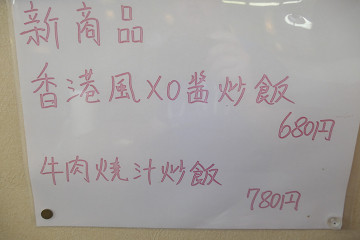 新商品
香港風XO醬炒飯
680円
牛肉燒汁炒飯
780円